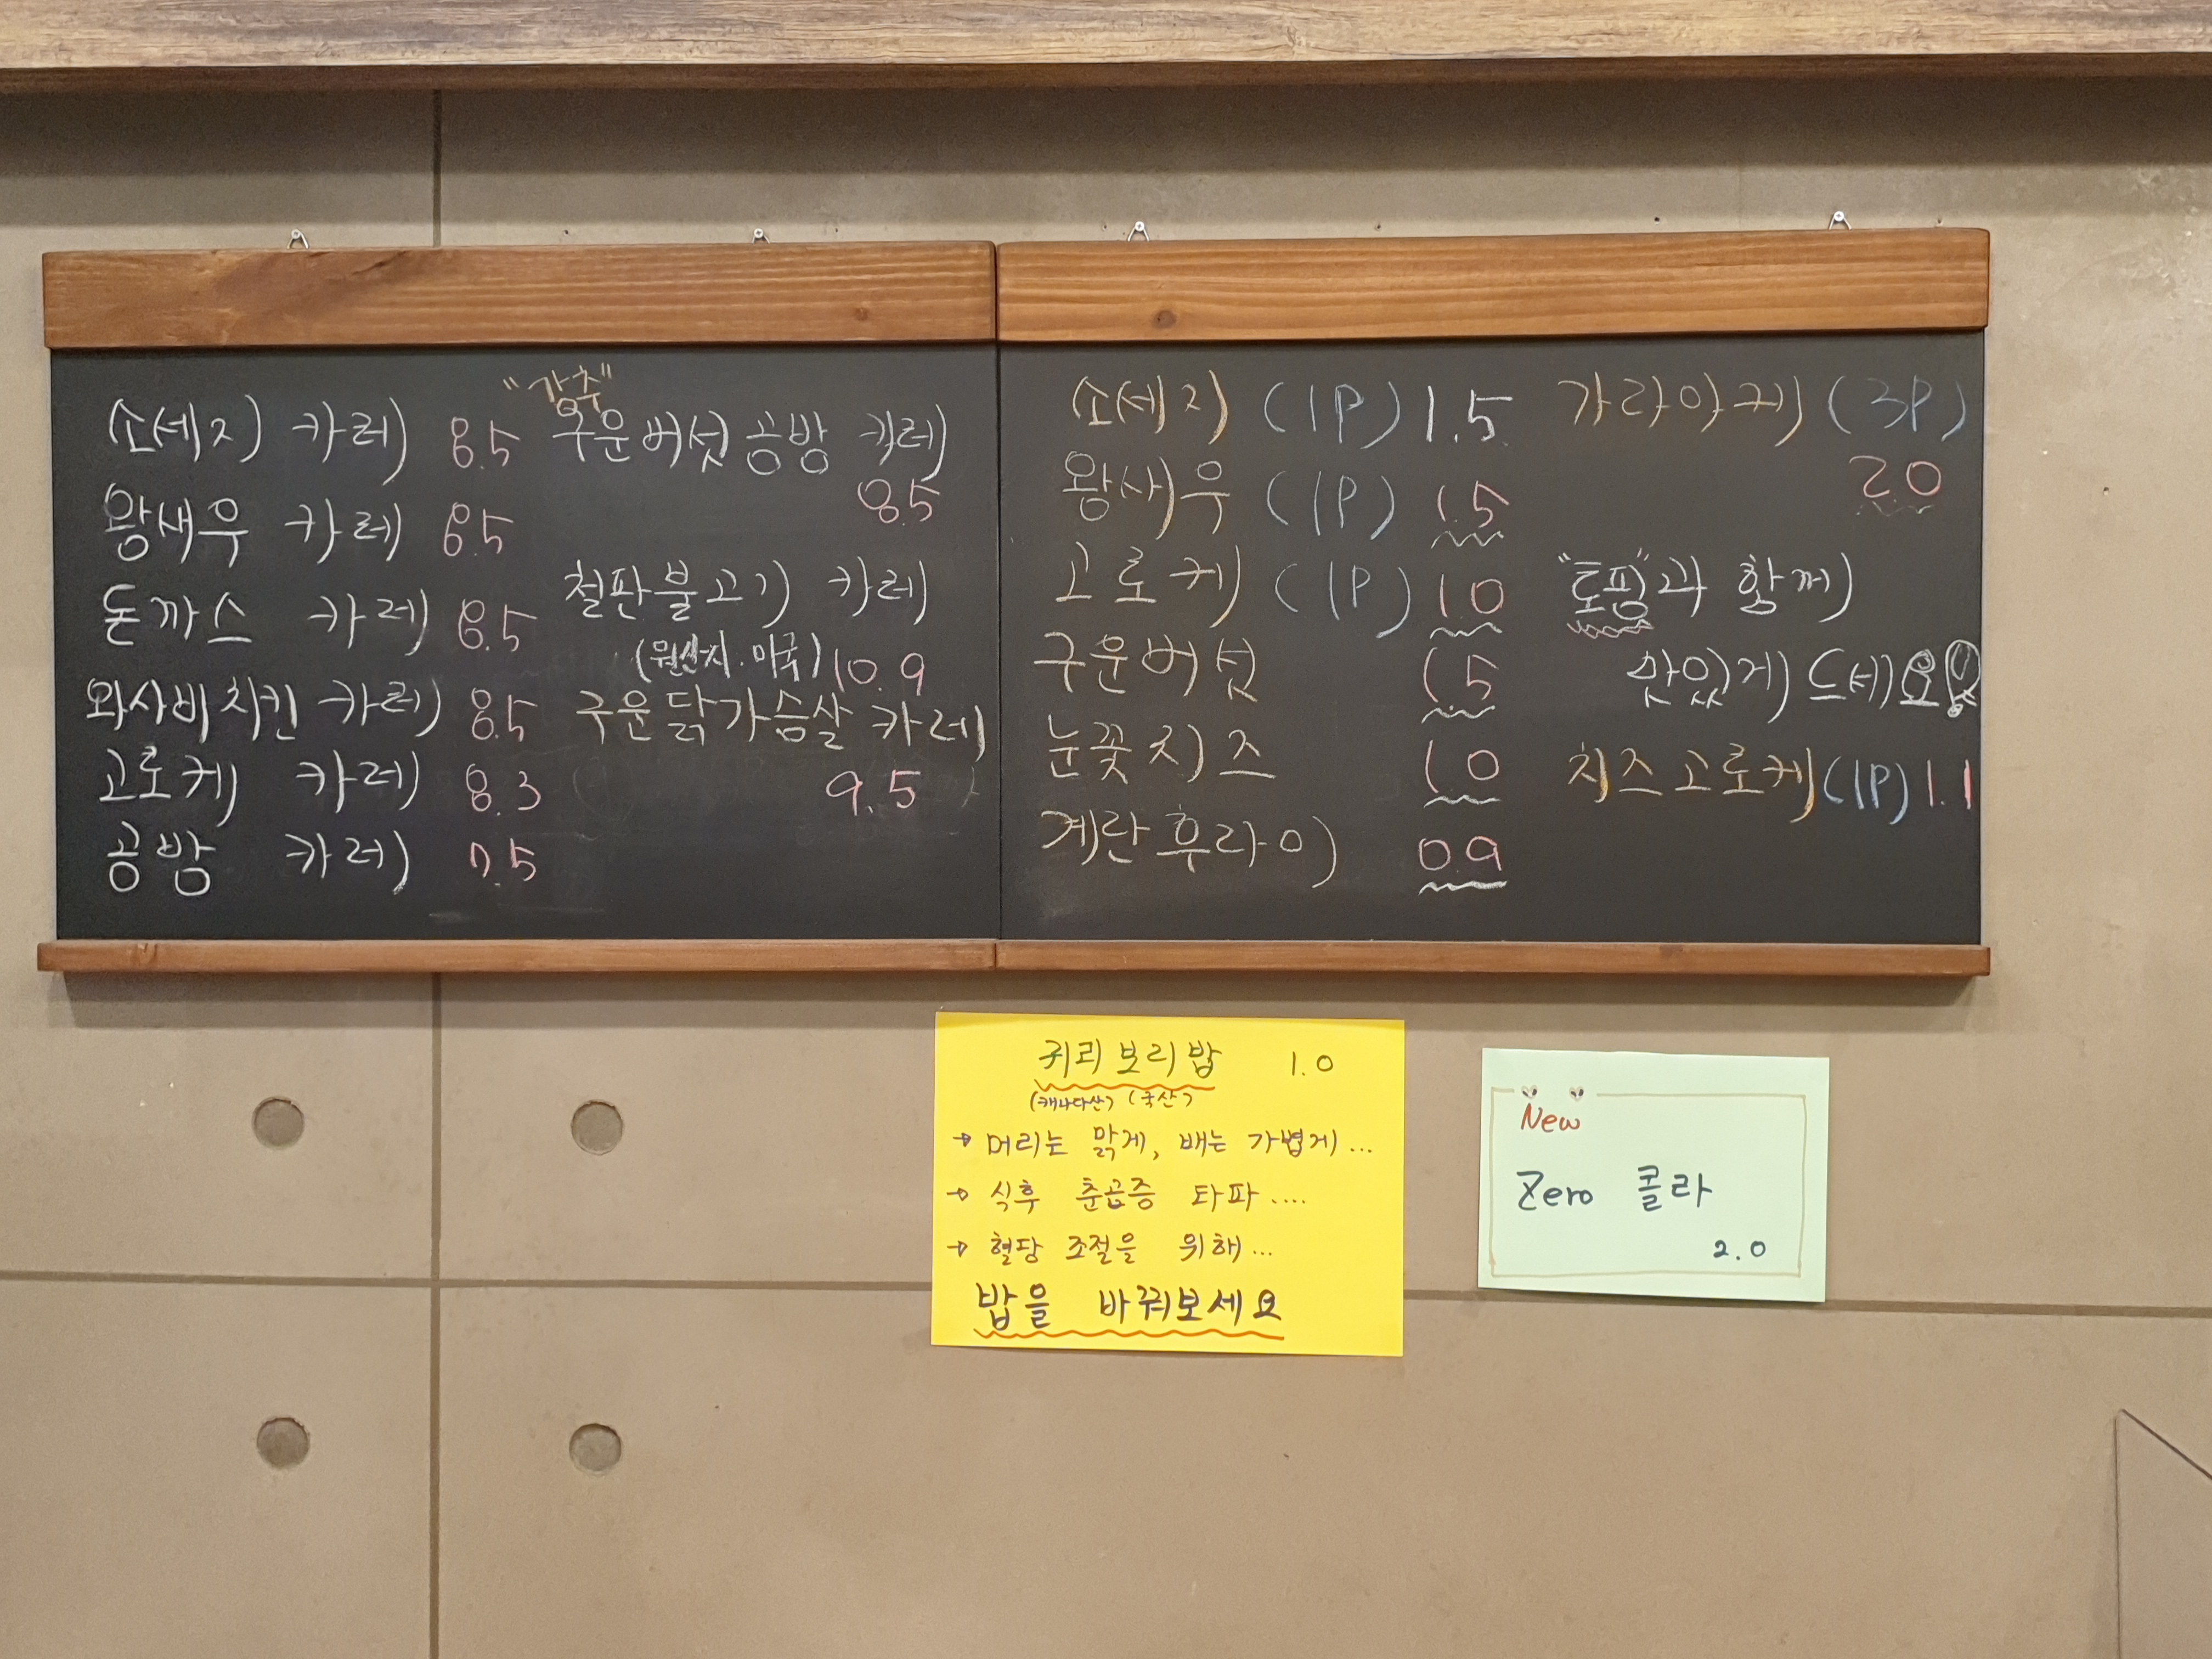 소세지 카레 8.5
왕새우 카레 8.5
돈까스 카레 8.5
와사비치킨 카레 8.5
고로케 카레 8.3
공방 카레 7.5
"강추"
구운버섯공방 카레
8.5
철판불고기 카레
(원산지.미국) 10.9
구운닭가슴살 카레
9.5
소세지 (1P) 1.5
왕새우 (1P) 1.5
고로케 (1P) 1.0
구운버섯 1.5
눈꽃치즈 1.0
계란후라이 0.9
가라아게 (3P)
2.0
"토핑"과 함께
맛있게 드세요!
치즈고로케 (1P) 1.1
귀리보리밥 1.0
(캐나다산) (국산)
→ 머리는 맑게, 배는 가볍게...
→ 식후 춘곤증 타파....
→ 혈당 조절을 위해...
밥을 바꿔보세요
New
Zero 콜라
2.0